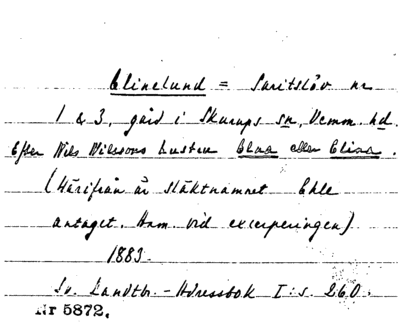 Elinelund = Saritslöv nr
1 & 3, gård i Skurups sn, Vemm. hd.
Efter Nils Nilssons hustru Elna eller Elina.
(Härifrån är släktnamnet Ehle
antaget. Anm. vid excerperingen)
1883.
Sv. Landtbr.-Adressbok I: s. 260.
Nr 5872.